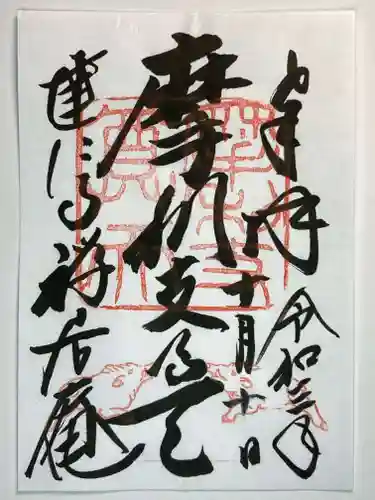 奉拝
令和三年
十月十日
摩利支尊天
建仁寺 禅居庵